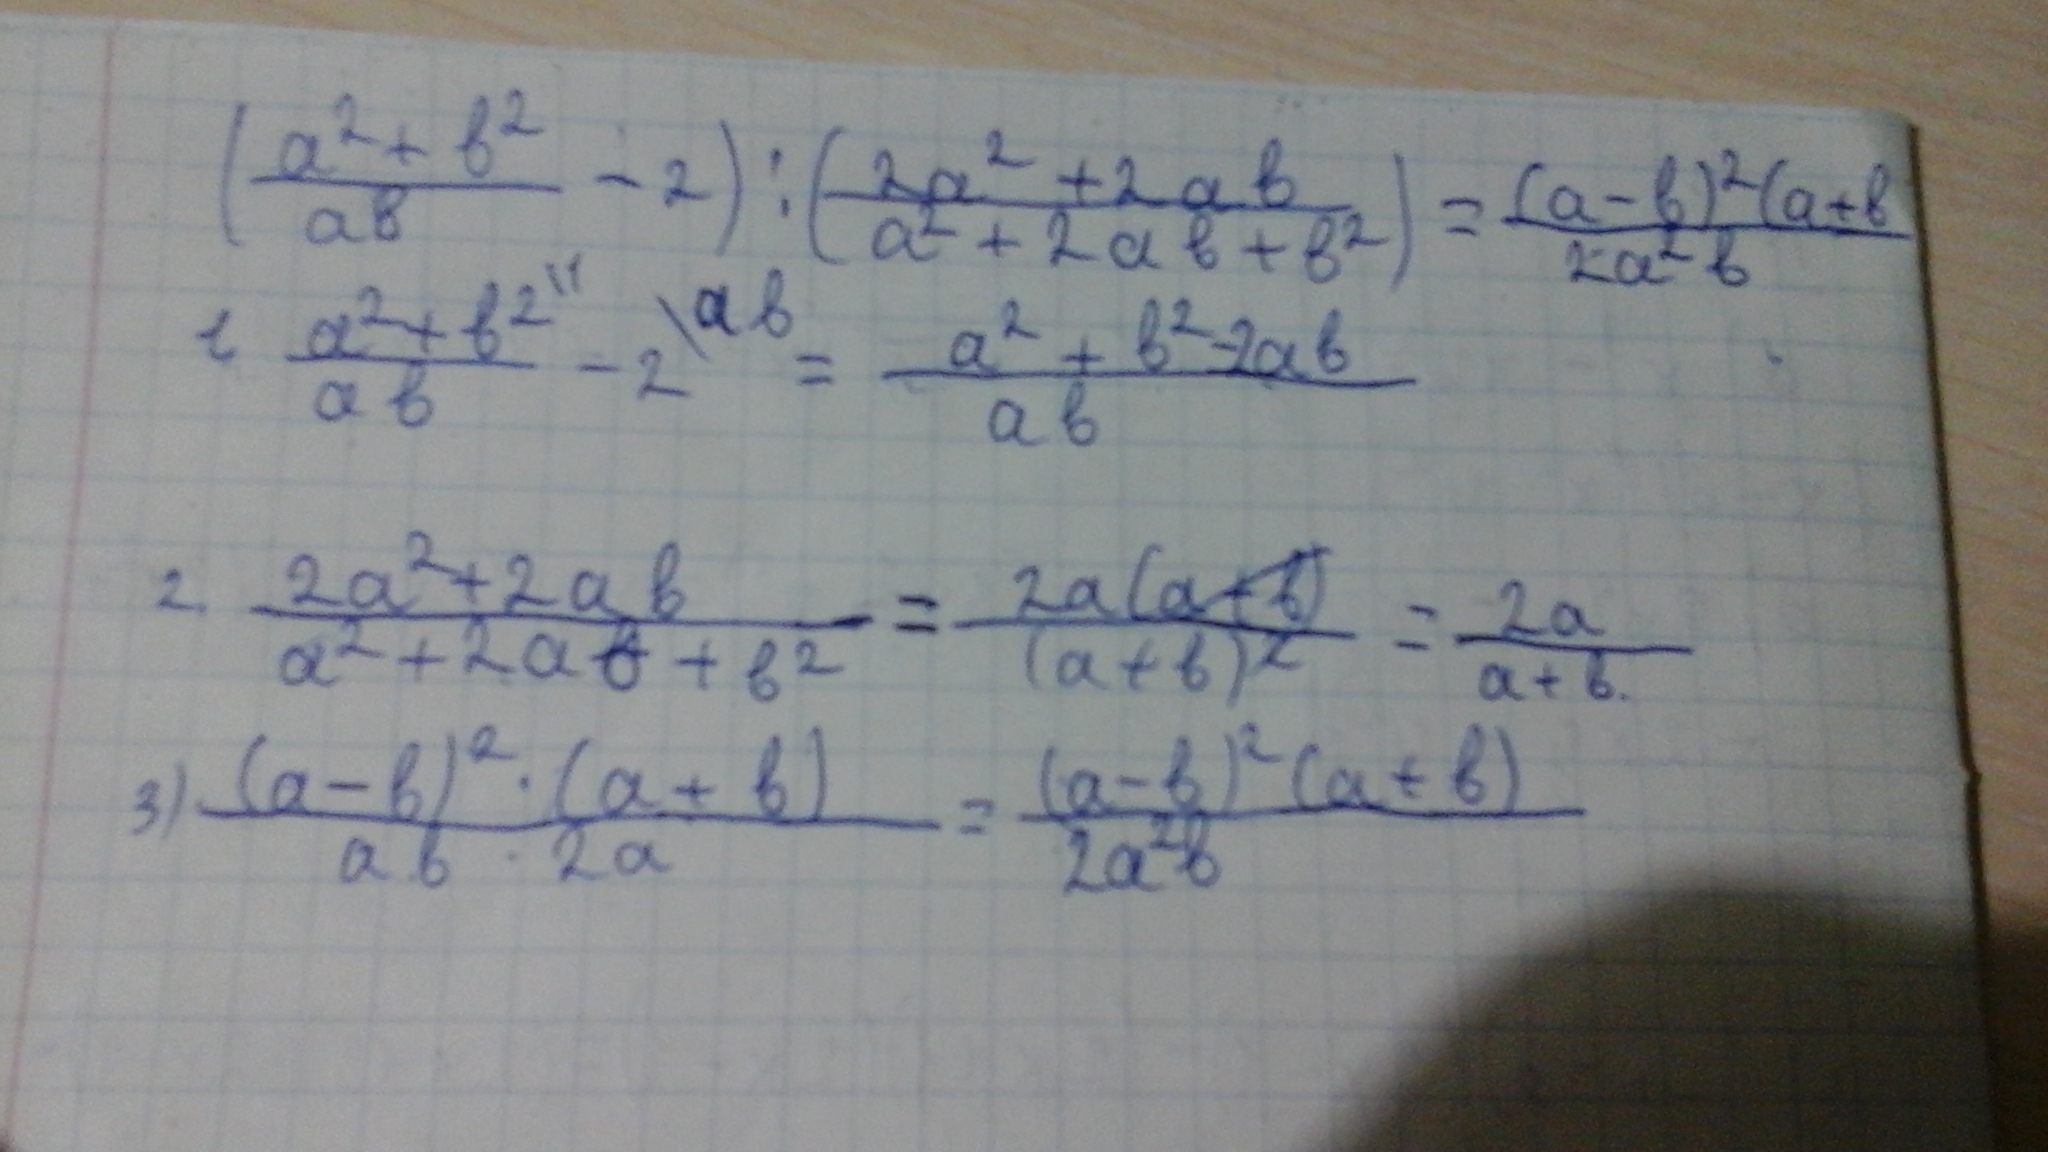 (a²+b²/ab - 2) : (2a²+2ab/a²+2ab+b²) = (a-b)²(a+b/2a²b
1 a²+b²\1/ab - 2\ab = a²+b²-2ab/ab
2. 2a²+2ab/a²+2ab+b² = 2a(a+b)/(a+b)² = 2a/a+b.
3) (a-b)²·(a+b)/ab·2a = (a-b)²(a+b)/2a²b